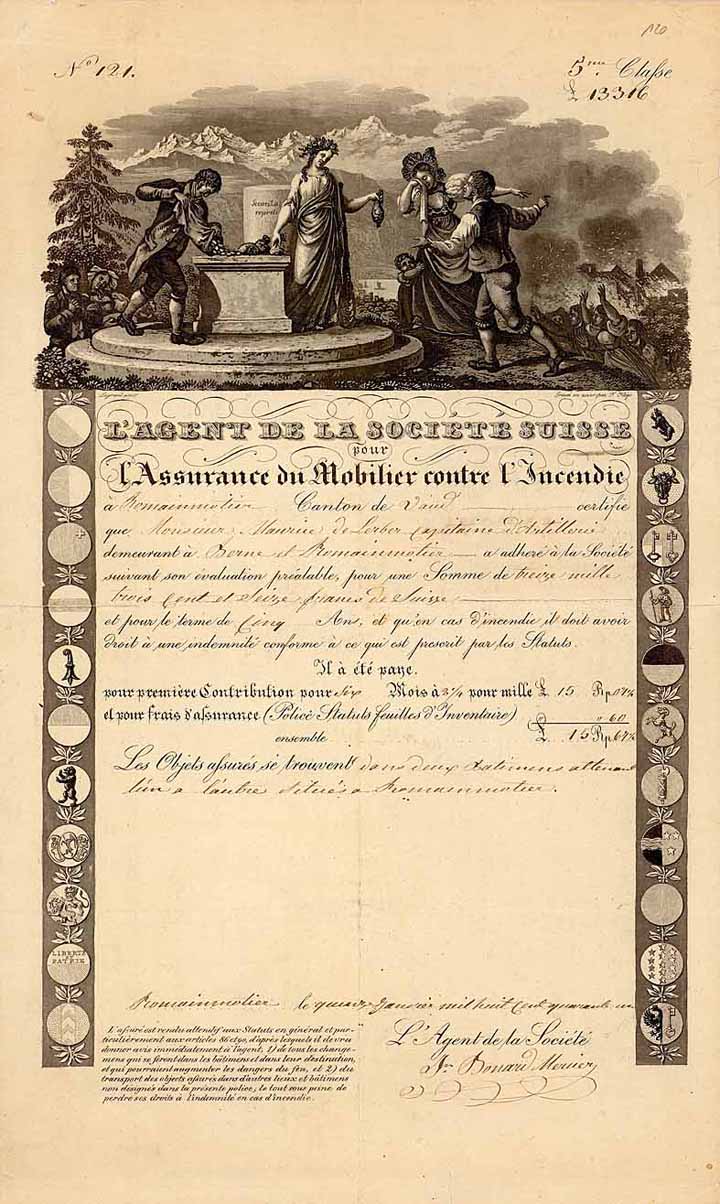 120
No 121.
5me Classe
£ 13316
L'AGENT DE LA SOCIÉTÉ SUISSE
pour
l'Assurance du Mobilier contre l'Incendie
à Romainmotier Canton de Vaud certifie
que Monsieur Maurice de Lerber Capitaine d'Artillerie
demeurant à Berne et Romainmotier a adhéré à la Société
suivant son évaluation préalable, pour une Somme de treize mille
trois Cent et Seize francs de Suisse
et pour le terme de Cinq Ans, et qu'en cas d'incendie il doit avoir
droit à une indemnité conforme à ce qui est prescrit par les Statuts.
Il a été payé.
pour première Contribution pour six Mois à 2/4 pour mille £ 15 Rp 07½
et pour frais d'assurance (Police Statuts feuilles d'Inventaire) " 60
ensemble £. 15 Rp 67½
Les Objets assurés se trouvent dans deux batimens attenant
l'un a l'autre situés a Romainmotier.
LIBERTÉ
ET
PATRIE
Romainmotier le quinze Janvier mil huit Cent quarante un
L'assuré est rendu attentif aux Statuts en général et par-
ticulièrement aux articles 86 et 90, d'après lesquels il devra
donner avis immédiatement à l'agent, 1) de tous les change-
mens qui se feront dans les bâtimens et dans leur destination,
et qui pourraient augmenter les dangers du feu, et 2) du
transport des objets assurés dans d'autres lieux et bâtimens
non désignés dans la présente police, le tout sous peine de
perdre ses droits à l'indemnité en cas d'incendie.
L'Agent de la Société
Bonard Mercier